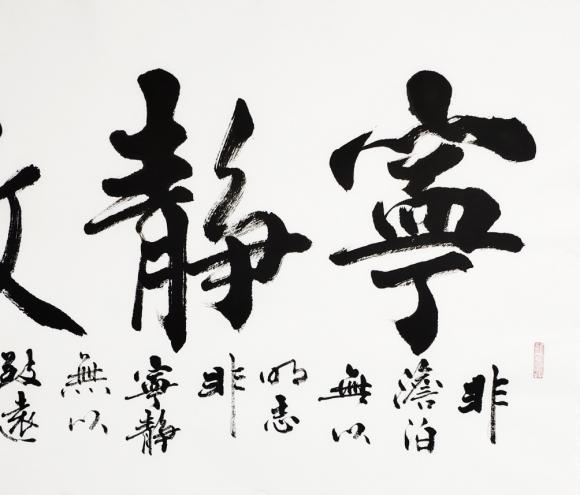 寧靜
非
澹泊
無以
明志
非
寧靜
無以
致遠